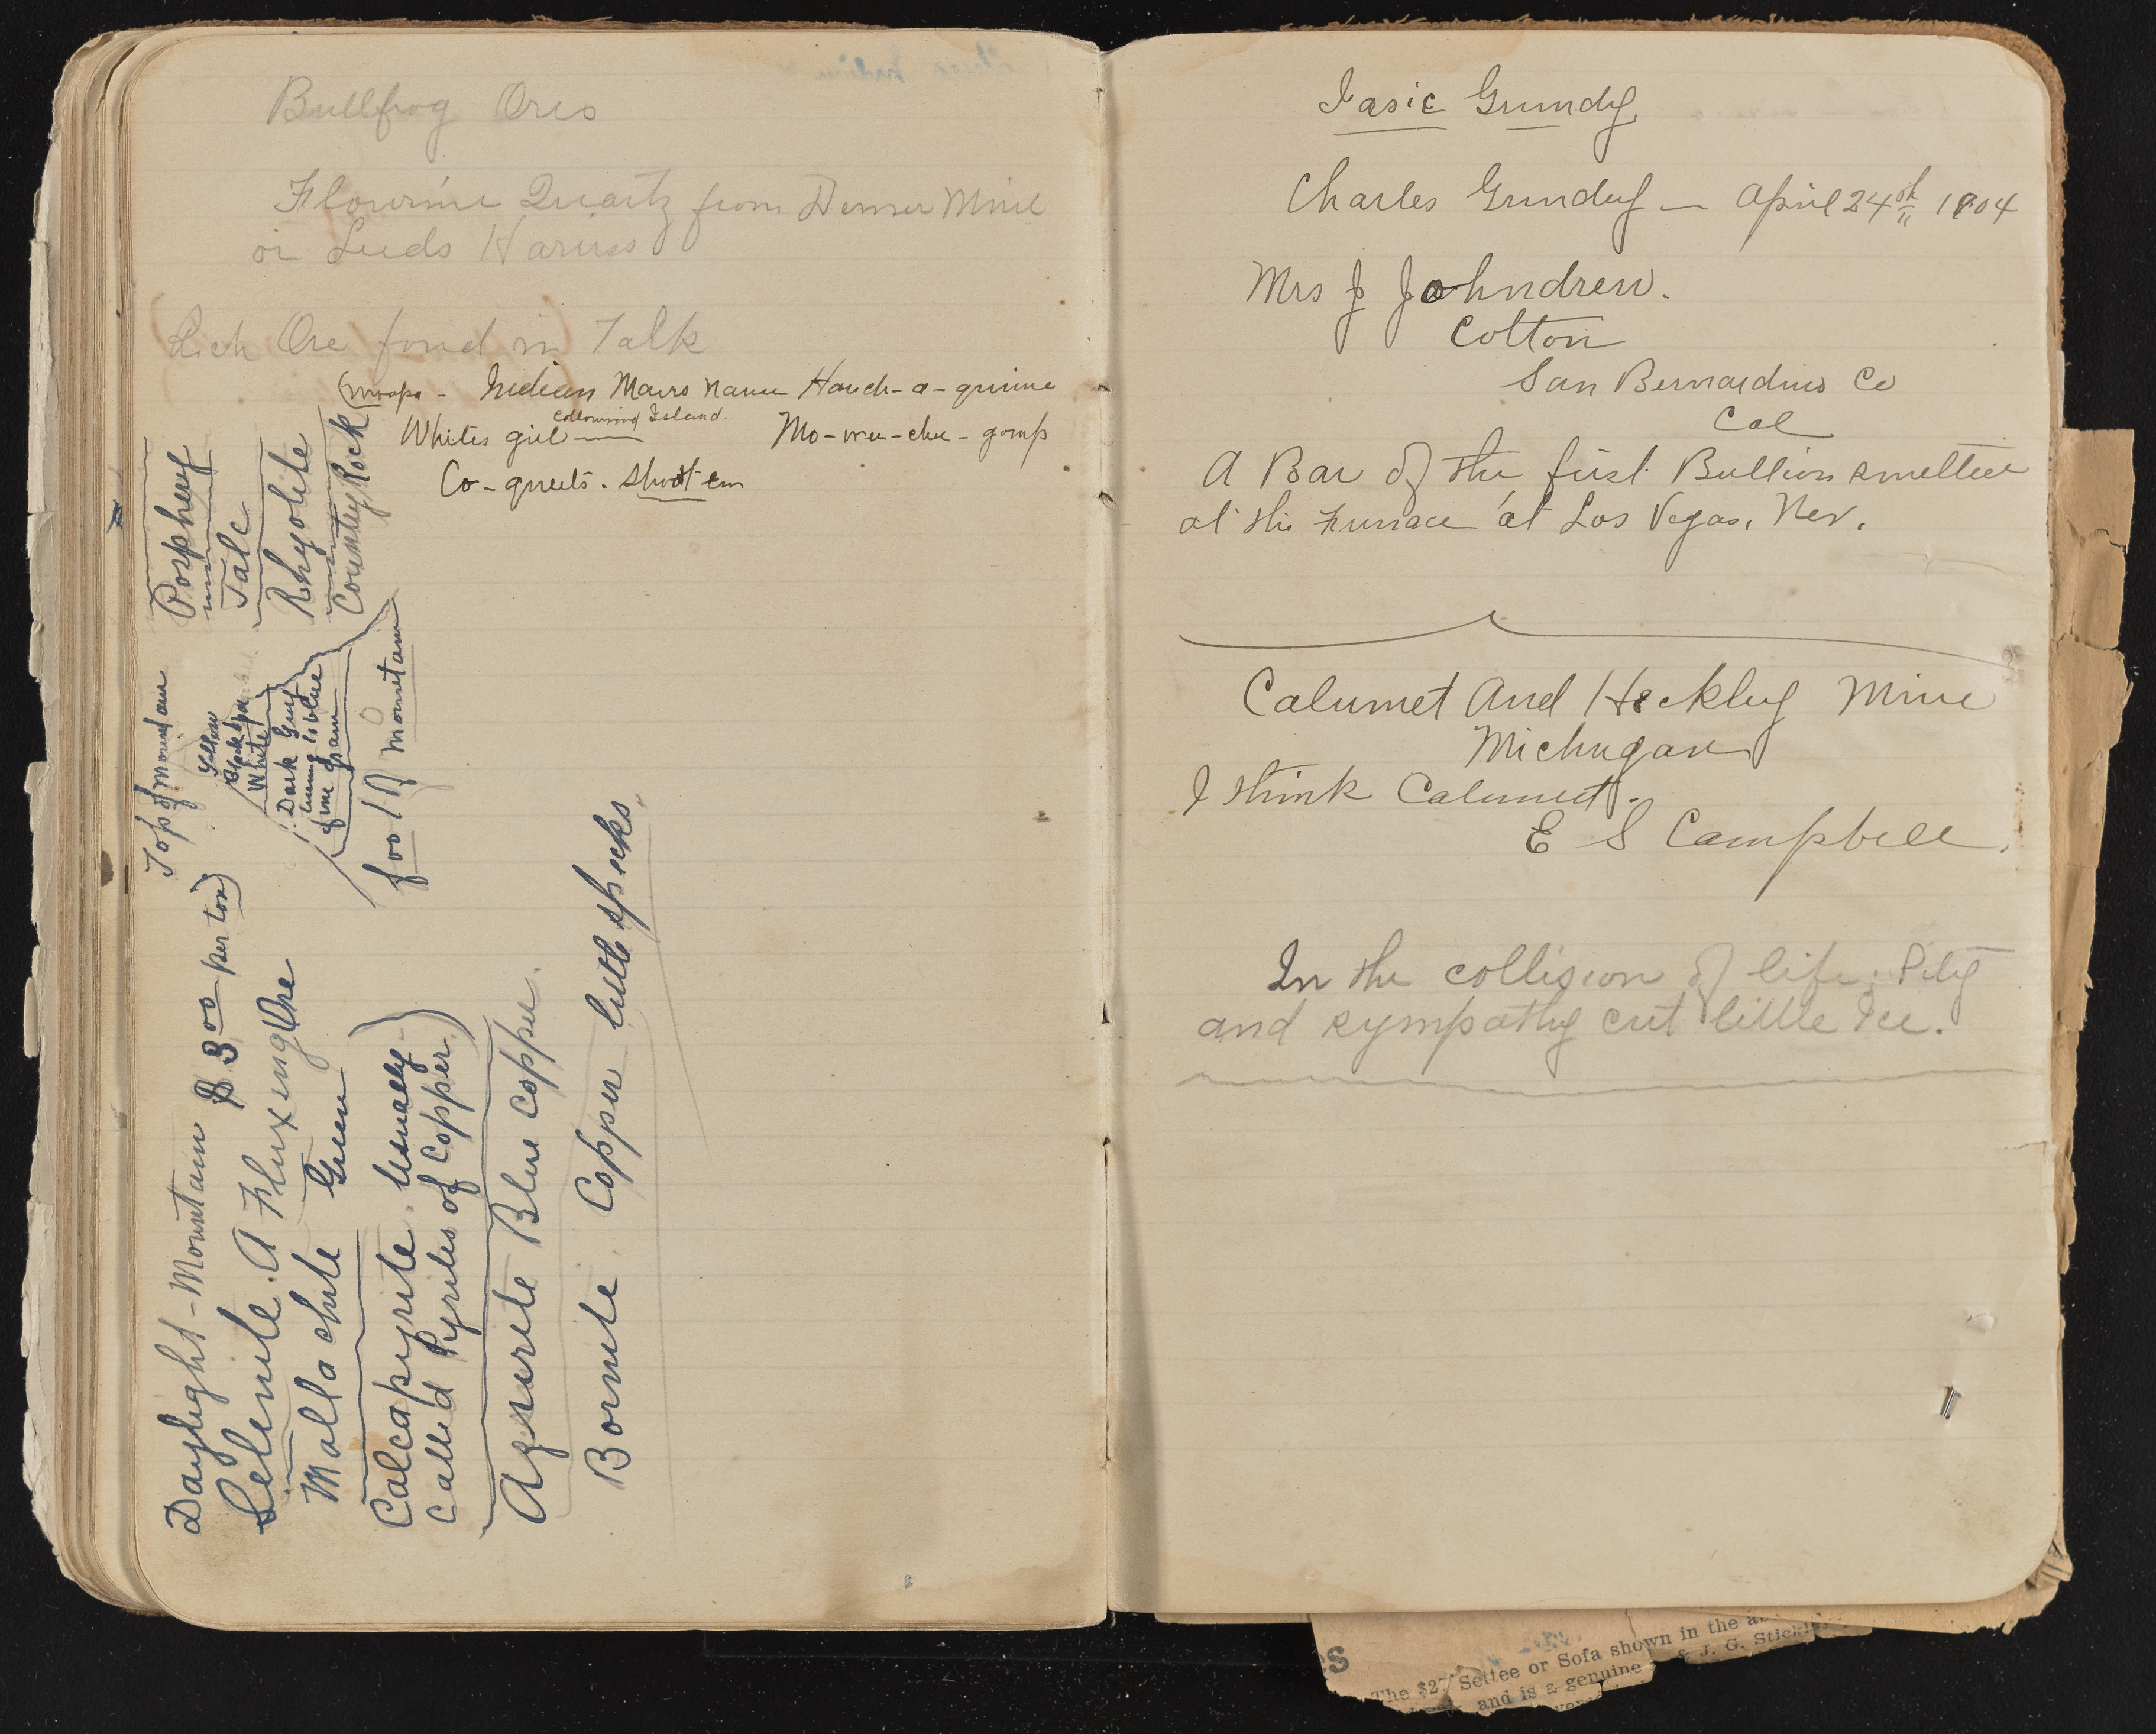 Bullfrog Ores
Flowrine Quartz from Denver Mine
or Leeds Harris
Rich Ore found in Talk
(Moapa - Indian Mans name Hauch-a-grinne
Whites girl — Cottonwood Island. Mo-vru-chu-gomp
Co-gneets. Shoot em
Posphery
Talc
Rhyolite
Country Rock
Top of Mountain
Yellow
Black
White
Dark Grey
fine grain
foot of Mountain
Daylight-Mountain $3.00 per ton)
Selenite. A Fluxeng Ore
Malla chite Green
Calcapyrite. Usually
called Pyrites of Copper)
Azurite Blue Copper.
Bornite. Copper little specks
Iasic Grundy
Charles Grundy — April 24th 1904
Mrs J Johndrew.
Colton
San Bernardino Co
Cal
A Bar of the first Bullion smelted
at the Furnace at Los Vegas, Nev.
Calumet And Heckley Mine
Michugan
I think Calumet.
E S Campbell.
In the collision of life. Pity
and sympathy cut little Ice.
S
The $27 Settee or Sofa shown in the
and is a genuine & J. G. Stickl